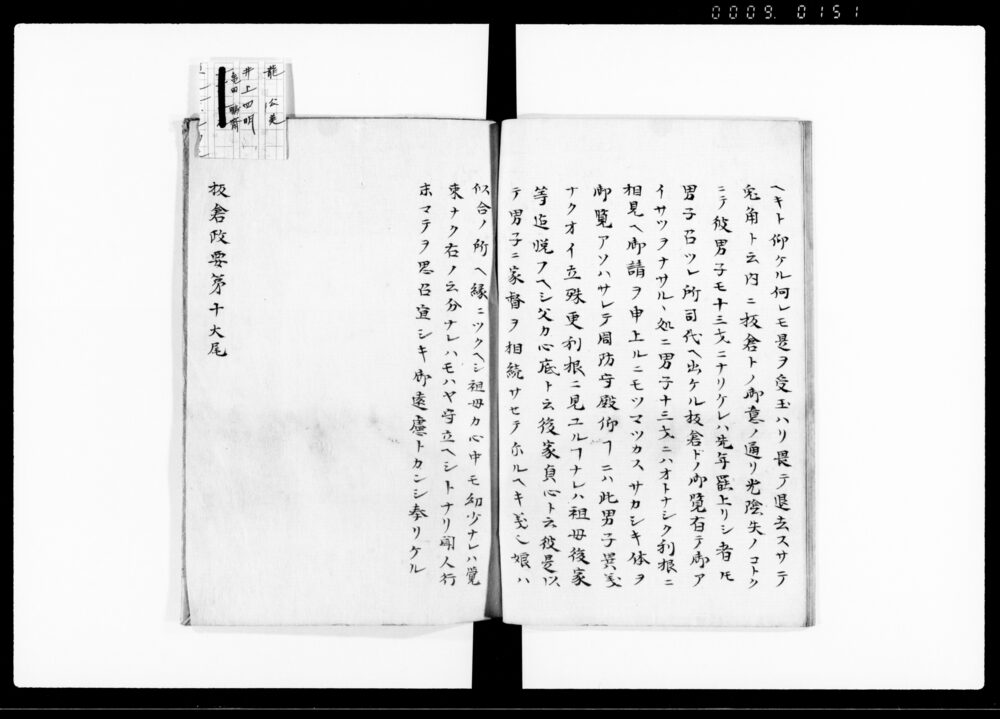 0009.0151
ヘキト仰ケル何レモ是ヲ受玉ハリ畏テ退去スサテ
兎角ト云内ニ板倉トノ御意ノ通リ光陰矢ノコトク
ニテ彼男子モ十三才ニナリケレハ先年罷上リシ者𪜈
男子召ツレ所司代ヘ出ケル板倉トノ御覧有テ御ア
イサツヲナサルヽ処ニ男子十三才ニハオトナシク利根ニ
相見ヘ御請ヲ申上ルニモツマツカスサカシキ体ヲ
御覧アソハサレテ周防守殿仰ヿニハ此男子異義
ナクオイ立殊更利根ニ見ユルヿナレハ祖母後家
等追悦フヘシ父カ心底ト云後家貞心ト云彼是以
テ男子ニ家督ヲ相続サセテ
ルヘキ義也娘ハ
似合ノ所ヘ縁ニツクヘシ祖母カ心中モ幼少ナレハ覚
束ナク右ノ云分ナレハモハヤ守立ヘシトナリ聞人行
末マテヲ思召宣シキ御遠慮トカンシ奉リケル
板倉政要第十大尾
龍公美
井上四明
亀田鵬齋